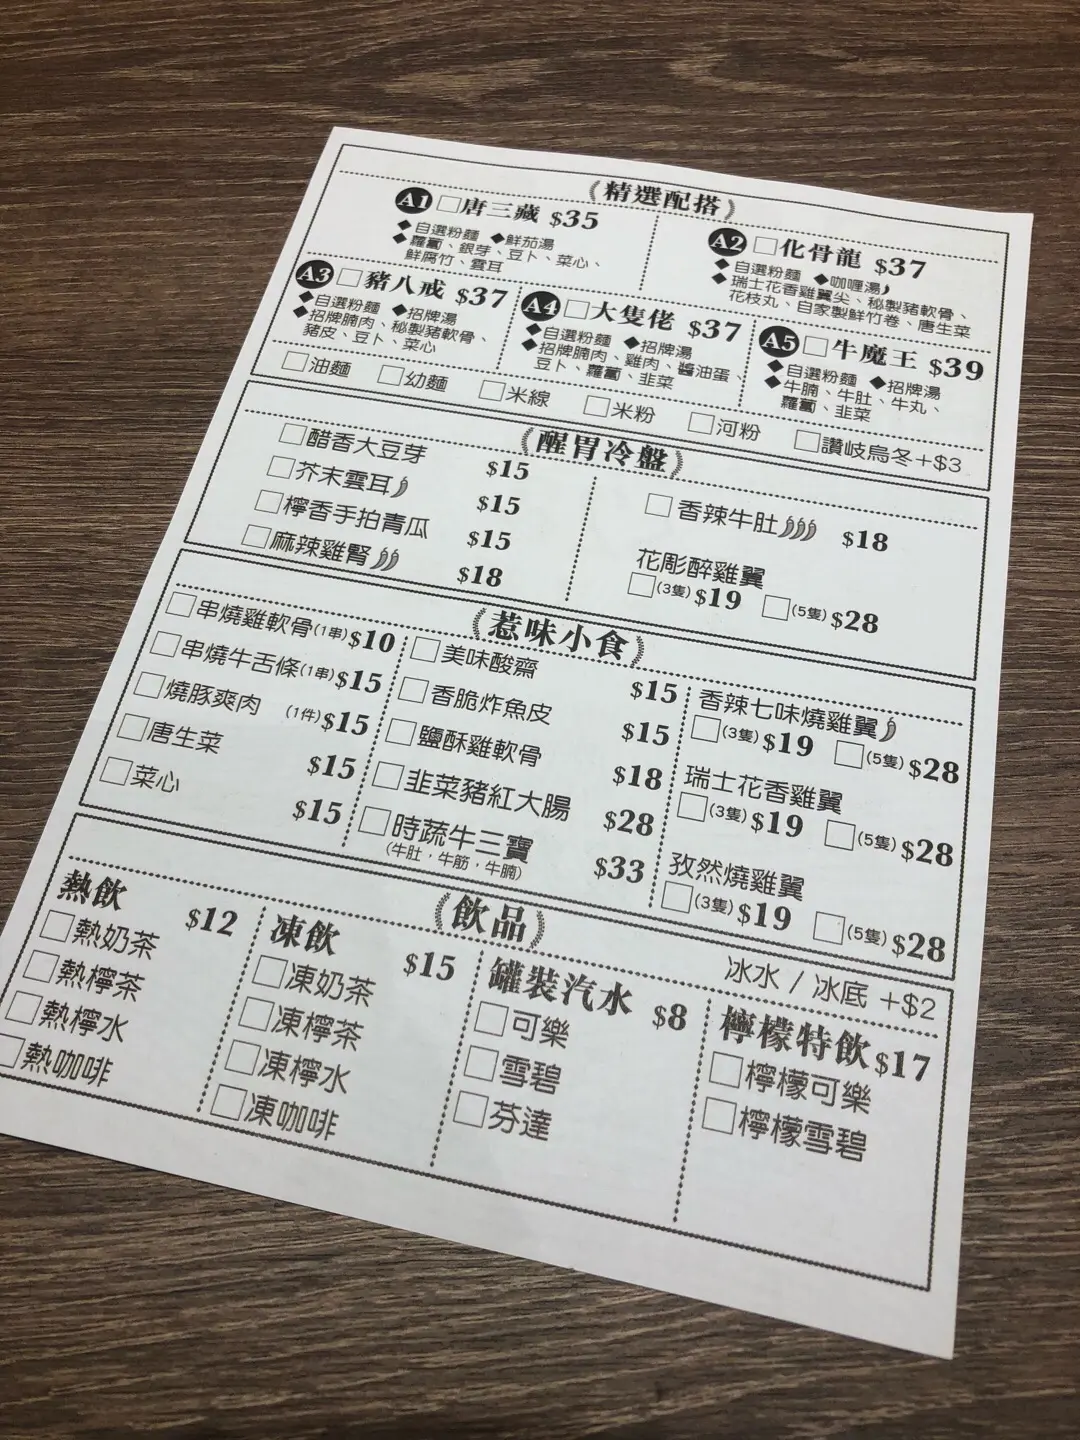 精選配搭
A1 唐三藏 $35
◆自選粉麵 ◆鮮茄湯
◆蘿蔔、銀芽、豆卜、菜心、
鮮腐竹、雲耳
A2 化骨龍 $37
◆自選粉麵 ◆咖喱湯
◆瑞士花香雞翼尖、秘製豬軟骨、
花枝丸、自家製鮮竹卷、唐生菜
A3 豬八戒 $37
◆自選粉麵 ◆招牌湯
◆招牌腩肉、秘製豬軟骨、
豬皮、豆卜、菜心
A4 大隻佬 $37
◆自選粉麵 ◆招牌湯
◆招牌腩肉、雞肉、醬油蛋、
豆卜、蘿蔔、韭菜
A5 牛魔王 $39
◆自選粉麵 ◆招牌湯
◆牛腩、牛肚、牛丸、
蘿蔔、韭菜
油麵 幼麵 米線 米粉 河粉 讚岐烏冬+$3
醒胃冷盤
醋香大豆芽 $15
芥末雲耳 $15
檸香手拍青瓜 $15
麻辣雞腎 $18
香辣牛肚 $18
花彫醉雞翼
(3隻) $19 (5隻) $28
惹味小食
串燒雞軟骨(1串) $10
串燒牛舌條(1串) $15
燒豚爽肉 (1件) $15
唐生菜 $15
菜心 $15
美味酸齋 $15
香脆炸魚皮 $15
鹽酥雞軟骨 $18
韭菜豬紅大腸 $28
時蔬牛三寶 $33
(牛肚，牛筋，牛腩)
香辣七味燒雞翼
(3隻) $19 (5隻) $28
瑞士花香雞翼
(3隻) $19 (5隻) $28
孜然燒雞翼
(3隻) $19 (5隻) $28
飲品
熱飲 $12
熱奶茶
熱檸茶
熱檸水
熱咖啡
凍飲 $15
凍奶茶
凍檸茶
凍檸水
凍咖啡
罐裝汽水 $8
可樂
雪碧
芬達
冰水 / 冰底 +$2
檸檬特飲 $17
檸檬可樂
檸檬雪碧